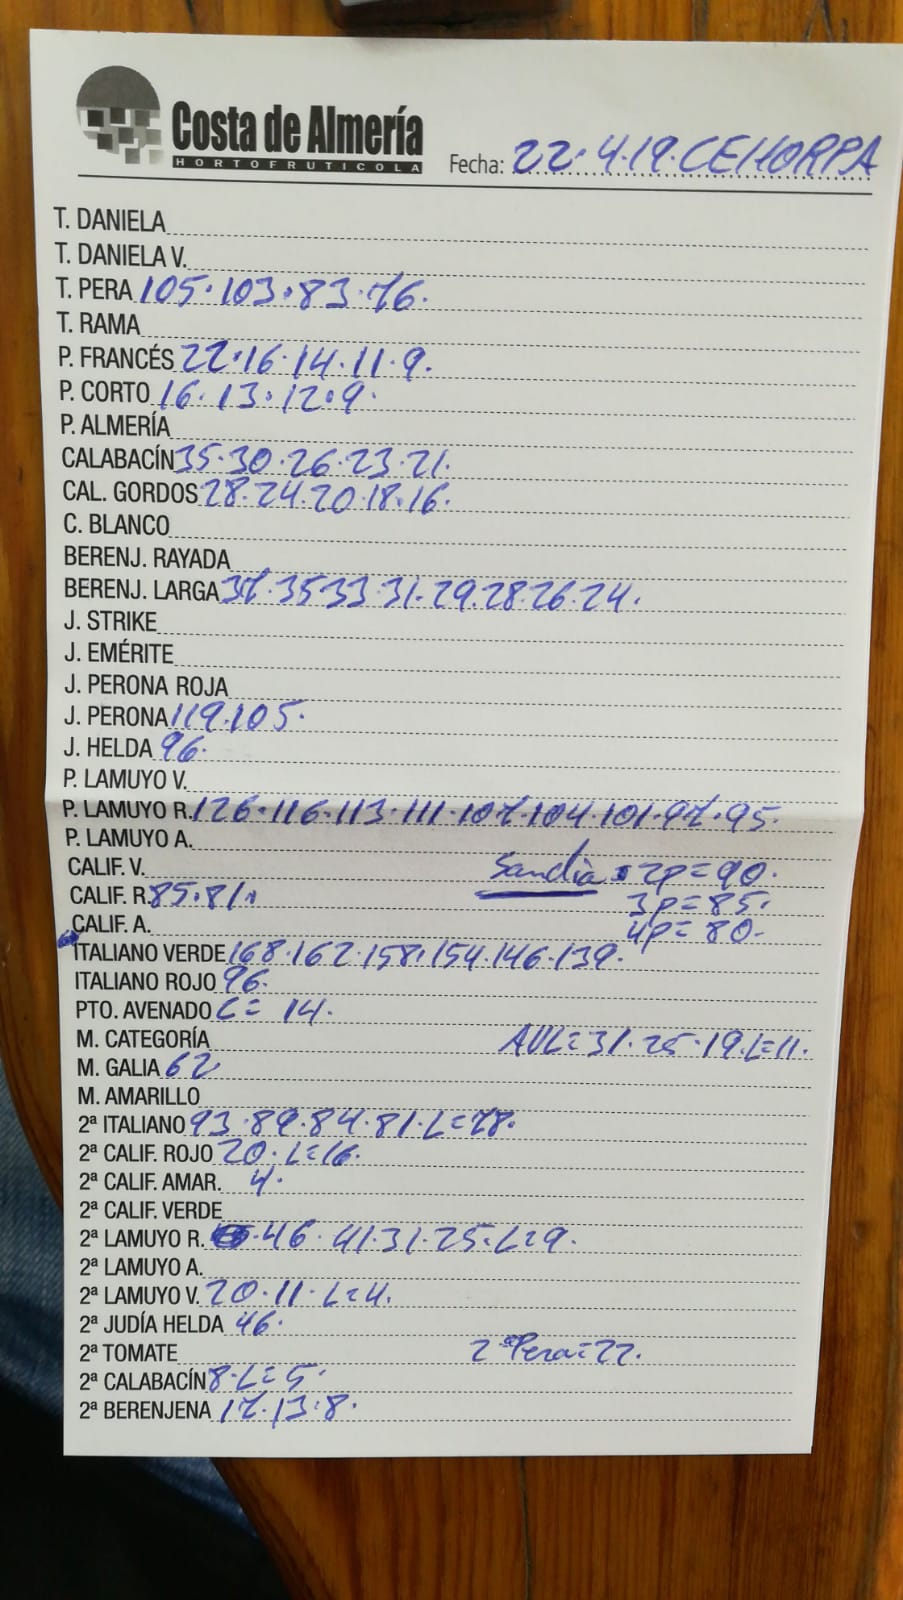 Costa de Almería
HORTOFRUTICOLA
Fecha: 22.4.19.CEHORPA
T. DANIELA
T. DANIELA V.
T. PERA 105.103.83.76.
T. RAMA
P. FRANCÉS 22.16.14.11.9.
P. CORTO 16.13.12.9.
P. ALMERÍA
CALABACÍN 35.30.26.23.21.
CAL. GORDOS 28.24.20.18.16.
C. BLANCO
BERENJ. RAYADA
BERENJ. LARGA 37.35 33 31.29.28.26.24.
J. STRIKE
J. EMÉRITE
J. PERONA ROJA
J. PERONA 119.105.
J. HELDA 96.
P. LAMUYO V.
P. LAMUYO R. 126.116.113.111.107.104.101.97.95.
P. LAMUYO A.
CALIF. V. Sandia 2p=90.
CALIF. R. 85.81. 3p=85.
CALIF. A. 4p=80.
ITALIANO VERDE 168.162.158.154.146.139.
ITALIANO ROJO 96.
PTO. AVENADO L= 14.
M. CATEGORÍA AVL=31.25.19.L=11.
M. GALIA 62
M. AMARILLO
2ª ITALIANO 93.89.84.81.L=78.
2ª CALIF. ROJO 20.L=16.
2ª CALIF. AMAR. 4.
2ª CALIF. VERDE
2ª LAMUYO R. 46.41.31.25.L=9.
2ª LAMUYO A.
2ª LAMUYO V. 20.11.L=4.
2ª JUDÍA HELDA 46.
2ª TOMATE 2ª Pera=22.
2ª CALABACÍN 8.L=5.
2ª BERENJENA 17.13.8.